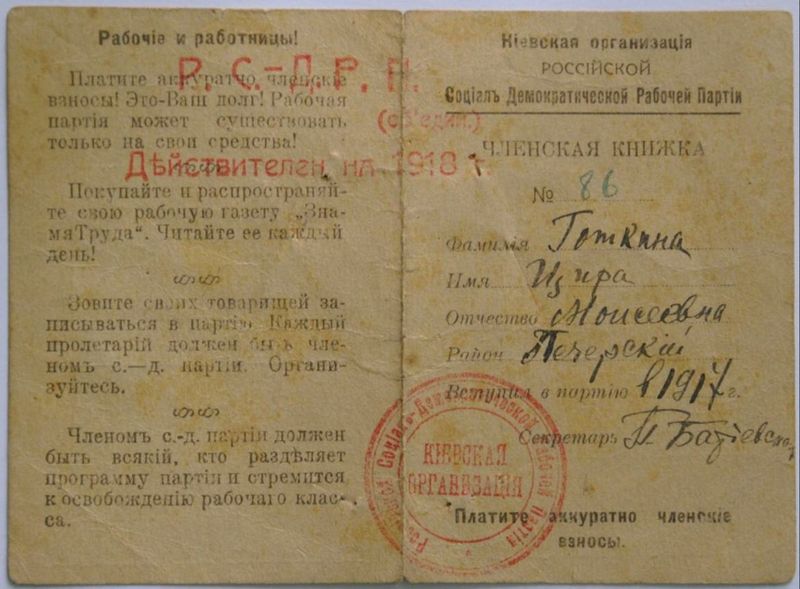 Рабочіе и работницы!
Платите аккуратно членскіе
взносы! Это-Ваш долг! Рабочая
партія может существовать
только на свои средства!
Покупайте и распространяй-
те свою рабочую газету „Зна-
мяТруда“. Читайте ее каждый
день!
Зовите своих товарищей за-
писываться в партію Каждый
пролетарій должен быть чле-
ном с.—д. партіи. Органи-
зуйтесь.
Членом с.-д. партіи должен
быть всякій, кто раздѣляет
программу партіи и стремится
к освобожденію рабочаго клас-
са.
Р. С.-Д. Р. П.
(объедин.)
Дѣйствителен на 1918 г.
Кіевская организація
РОССІЙСКОЙ
Соціалъ Демократической Рабочей Партіи
ЧЛЕНСКАЯ КНИЖКА
№ 86
Фамилія Готкина
Имя Цира
Отчество Моисеевна
Район Печерскій
Вступил в партію в 1917 г.
Секретарь П
Россійской Соціалъ-Демократической Рабочей Партіи
КІЕВСКАЯ
ОРГАНИЗАЦІЯ
Платите аккуратно членскіе
взносы.